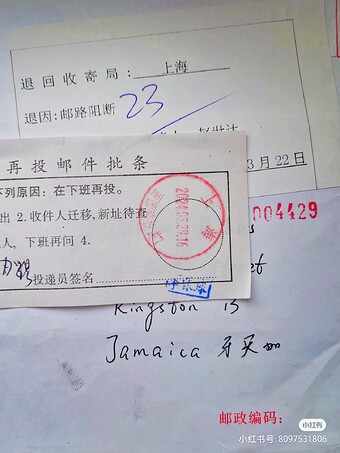 退回收寄局： 上海
退因：邮路阻断 23
3月22日
再投邮件批条
下列原因：在下班再投。
出 2.收件人迁移，新址待查
人，下班再问 4.
投递员签名
2024.03.29.16
上海
004429
Kingston 13
Jamaica 牙买加
邮政编码：
小红书
小红书号: 8097531806